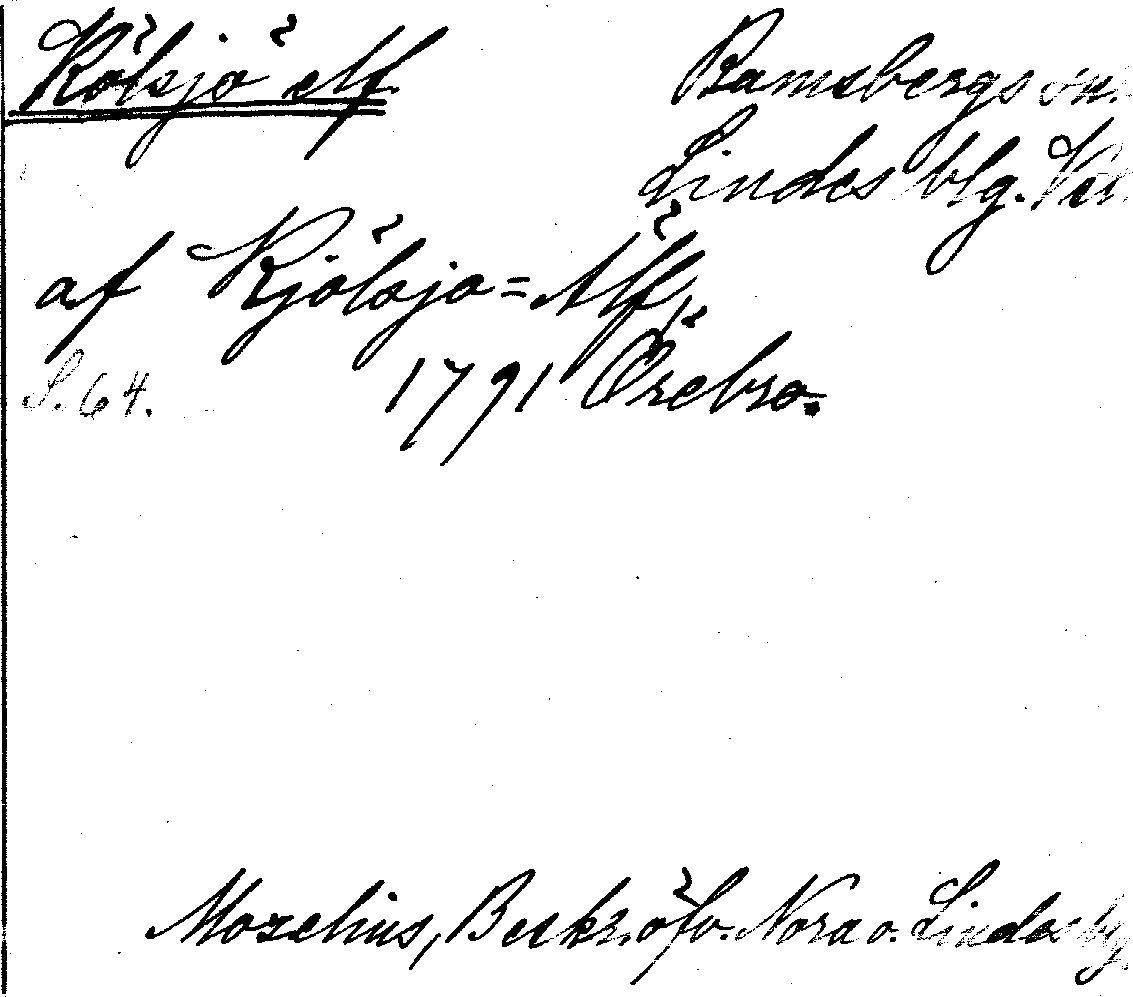 Kölsjö elf.
Ramsbergs sn.
Lindes blg. Vstm.
af Kjölsjö=Älf,
S. 64. 1791 Örebro.
Mozelius, Beskr. öfv. Nora o. Lindes blg.